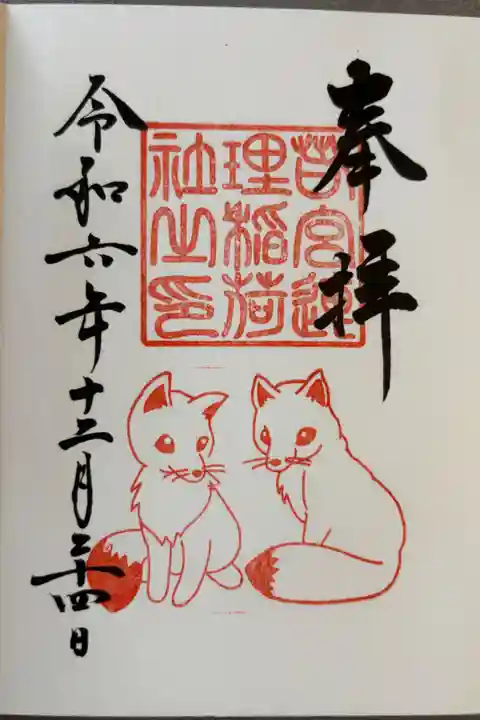 奉拝
宮
理稲荷
社之印
令和六年十二月二十四日